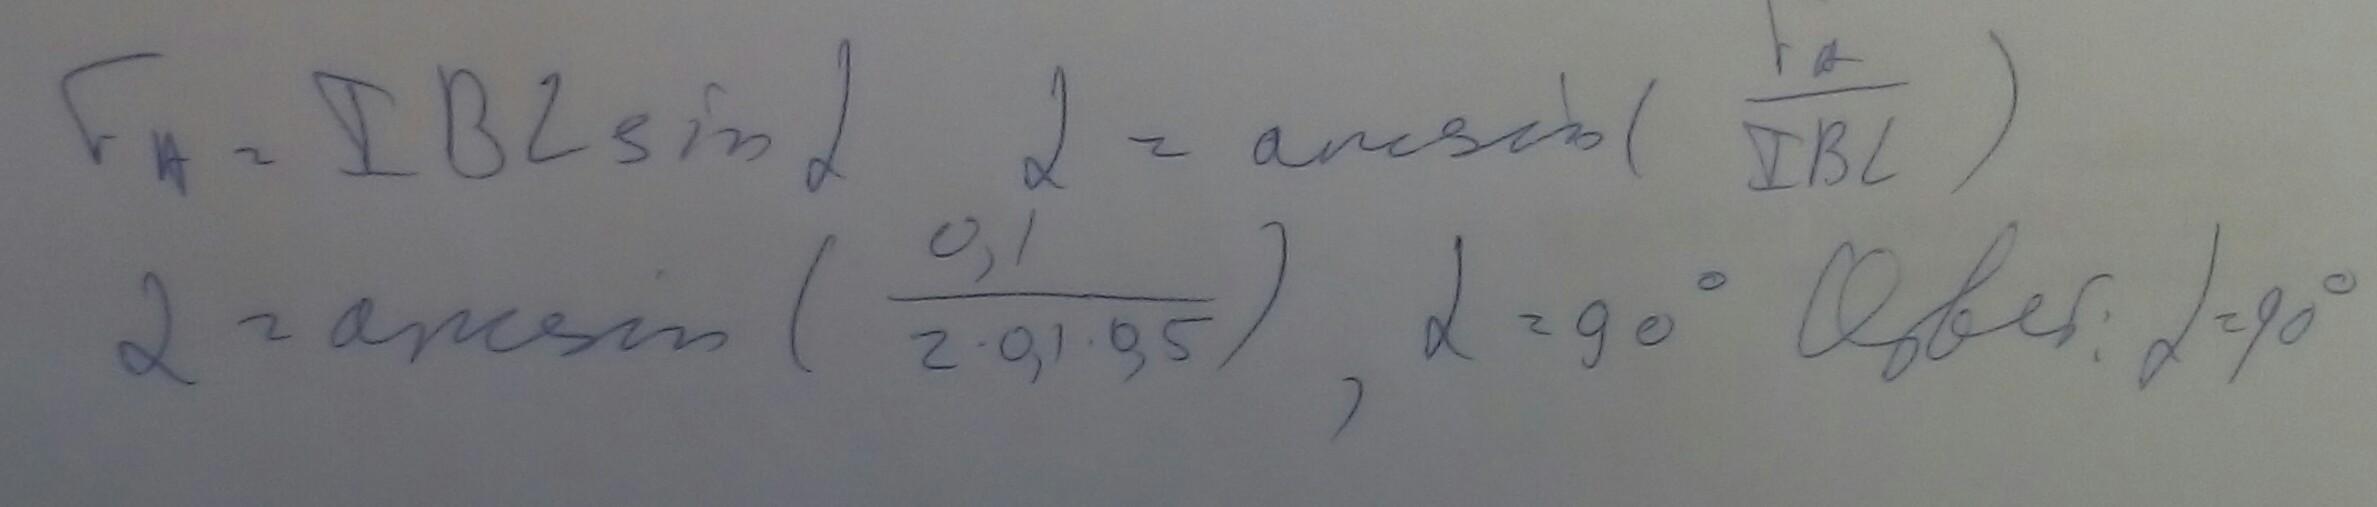 F_A = IBL sin α α = arcsin( F_A / IBL )
α = arcsin ( 0,1 / 2·0,1·0,5 ) , α = 90° Ответ: α = 90°